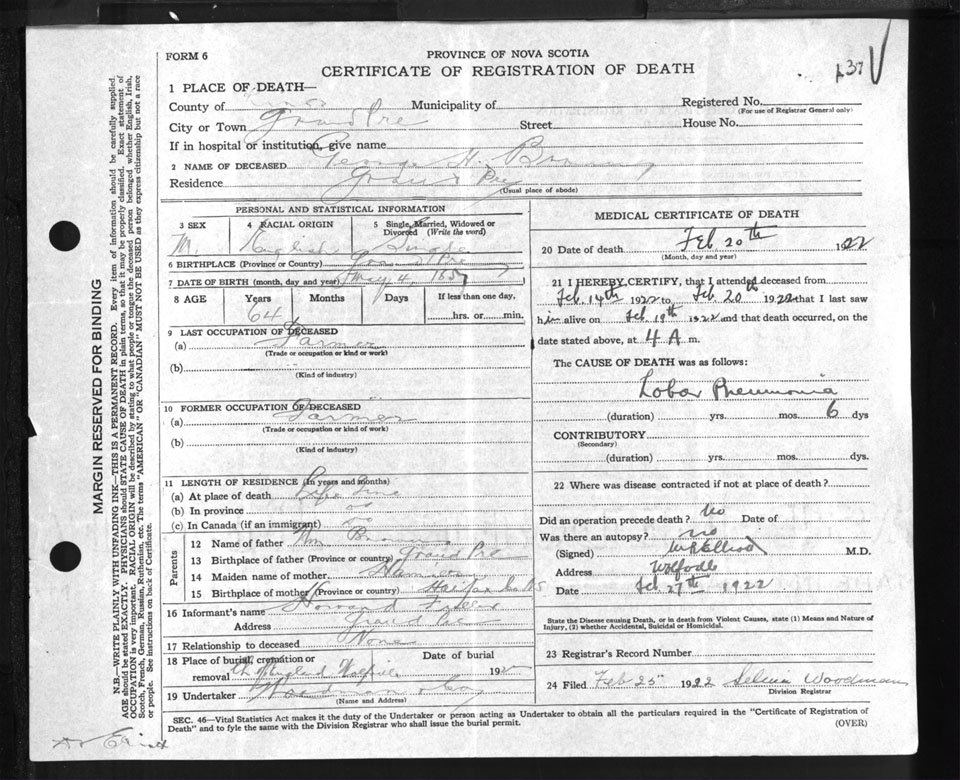 137
FORM 6
PROVINCE OF NOVA SCOTIA
CERTIFICATE OF REGISTRATION OF DEATH
1 PLACE OF DEATH—
County of Municipality of Registered No.
(For use of Registrar General only)
City or Town Grand Pre Street House No.
If in hospital or institution, give name
2 NAME OF DECEASED George H.
Residence Grand Pre
(Usual place of abode)
PERSONAL AND STATISTICAL INFORMATION
3 SEX 4 RACIAL ORIGIN 5 Single, Married, Widowed or
Divorced (Write the word)
M. English Single
6 BIRTHPLACE (Province or Country) Grand Pre
7 DATE OF BIRTH (month, day and year) May 4, 1857
8 AGE Years Months Days If less than one day,
64 hrs. or min.
9 LAST OCCUPATION OF DECEASED
(a) Farmer
(Trade or occupation or kind or work)
(b)
(Kind of industry)
10 FORMER OCCUPATION OF DECEASED
(a) Farmer
(Trade or occupation or kind of work)
(b)
(Kind of industry)
11 LENGTH OF RESIDENCE (In years and months)
(a) At place of death Life Time
(b) In province do
(c) In Canada (if an immigrant) do
Parents
12 Name of father Wm
13 Birthplace of father (Province or country) Grand Pre
14 Maiden name of mother
15 Birthplace of mother (Province or country) Halifax Co NS
16 Informant's name Howard Fuller
Address Grand Pre
17 Relationship to deceased None
18 Place of burial, cremation or Date of burial
removal 192
19 Undertaker Woodman & Co,
(Name and Address)
MEDICAL CERTIFICATE OF DEATH
20 Date of death Feb 20th 1922
(Month, day and year)
21 I HEREBY CERTIFY, that I attended deceased from
Feb. 14th 1922 to Feb. 20th 1922 that I last saw
him alive on Feb. 19th 1922 and that death occurred, on the
date stated above, at 4 A m.
The CAUSE OF DEATH was as follows:
Lobar Pneumonia
(duration) yrs. mos. 6 dys
CONTRIBUTORY
(Secondary)
(duration) yrs. mos. dys.
22 Where was disease contracted if not at place of death?
Did an operation precede death? no Date of
Was there an autopsy? no
(Signed) Elliott M.D.
Address Wolfville
Date Feb 27th 1922
State the Disease causing Death, or in death from Violent Causes, state (1) Means and Nature of
Injury, (2) whether Accidental, Suicidal or Homicidal.
23 Registrar's Record Number
24 Filed Feb 25 1922 Selina Woodman
Division Registrar
SEC. 46—Vital Statistics Act makes it the duty of the Undertaker or person acting as Undertaker to obtain all the particulars required in the "Certificate of Registration of
Death" and to fyle the same with the Division Registrar who shall issue the burial permit.
(OVER)
MARGIN RESERVED FOR BINDING
N.B.—WRITE PLAINLY WITH UNFADING INK—THIS IS A PERMANENT RECORD. Every item of information should be carefully supplied.
AGE should be stated EXACTLY. PHYSICIANS should STATE CAUSE OF DEATH in plain terms, so that it may be properly classified. Exact statement of
OCCUPATION is very important. RACIAL ORIGIN will be described by stating to what people or tongue the deceased person belonged whether English, Irish,
Scotch, French, German, Russian, Ruthenian, etc. The terms "AMERICAN" OR "CANADIAN" MUST NOT BE USED as they express citizenship but not a race
or people. See instructions on back of Certificate.